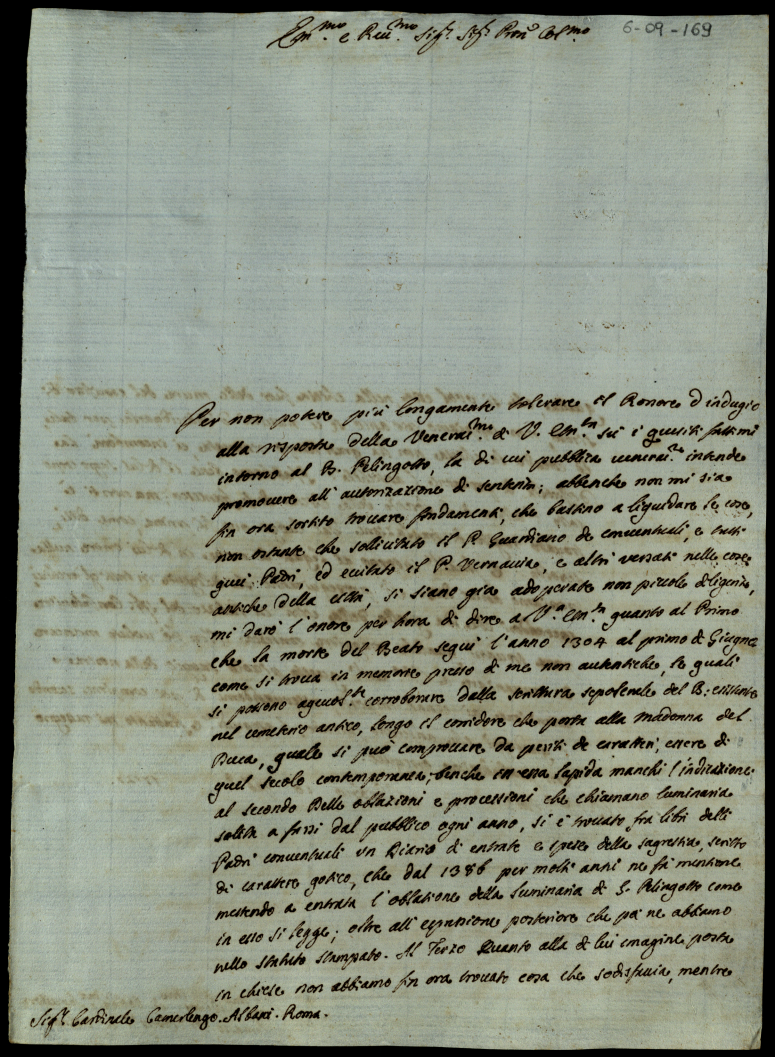 6-09-169
Em.mo e Reu.mo Sig.r Sig.r Pron. Col.mo
Per non potere più longamente tolerare il Rossore d'indugio
alla risposta della Venerat.ma di V. Em.za sù i quesiti fattimi
intorno al B. Pelingotto, la di cui pubblica venerat.ne intende
promouere all'autorizazione di sentenza; abbenche non mi sia
fin ora sortito trouare fondamenti, che bastino a liquidare le cose,
non ostante che sollicitato il P. Guardiano de conuentuali, e tutti
quei Padri, ed ecitato il P. Vernaccia, e altri versati nelle cose
antiche della città, si siano già adoperate non piccole diligenze,
mi darò l'onore per hora di dire a V.a Em.za quanto al Primo
che la morte del Beato seguì l'anno 1304 al primo di Giugno
come si troua in memorie presso di me non autentiche, le quali
si possono ageuol.te corroborare dalla scrittura sepolcrale del B: esistente
nel cemeterio antico, lungo il corridore che porta alla madonna del
Duca, quale si può comprouare da periti de caratteri, essere di
quel secolo contemporanea; benche in essa lapida manchi l'inditione.
al secondo Delle oblazioni e processioni che chiamano luminaria
solita a farsi dal pubblico ogni anno, si è trouato fra libri delli
Padri conuentuali un Diario di entrate e spese della sagrestia, scritto
di carattere gotico, che dal 1386 per molti anni ne fà mentione
mettendo a entrata l'oblatione della Luminaria di S. Pelingotto come
in esso si legge; oltre all'espressione posteriore che poi ne abbiamo
nello statuto stampato. Al Terzo Quanto alla di lui imagine posta
in chiese non abbiamo fin ora trouato cosa che sodisfaccia, mentre
Sig.r Cardinale Camerlengo Albani. Roma.